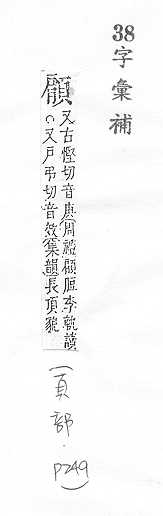 38字彙補
顅 又古慳切音周禮顅脰李軌讀
○又戶弔切音效集韻長頂貌
(頁部.p249)